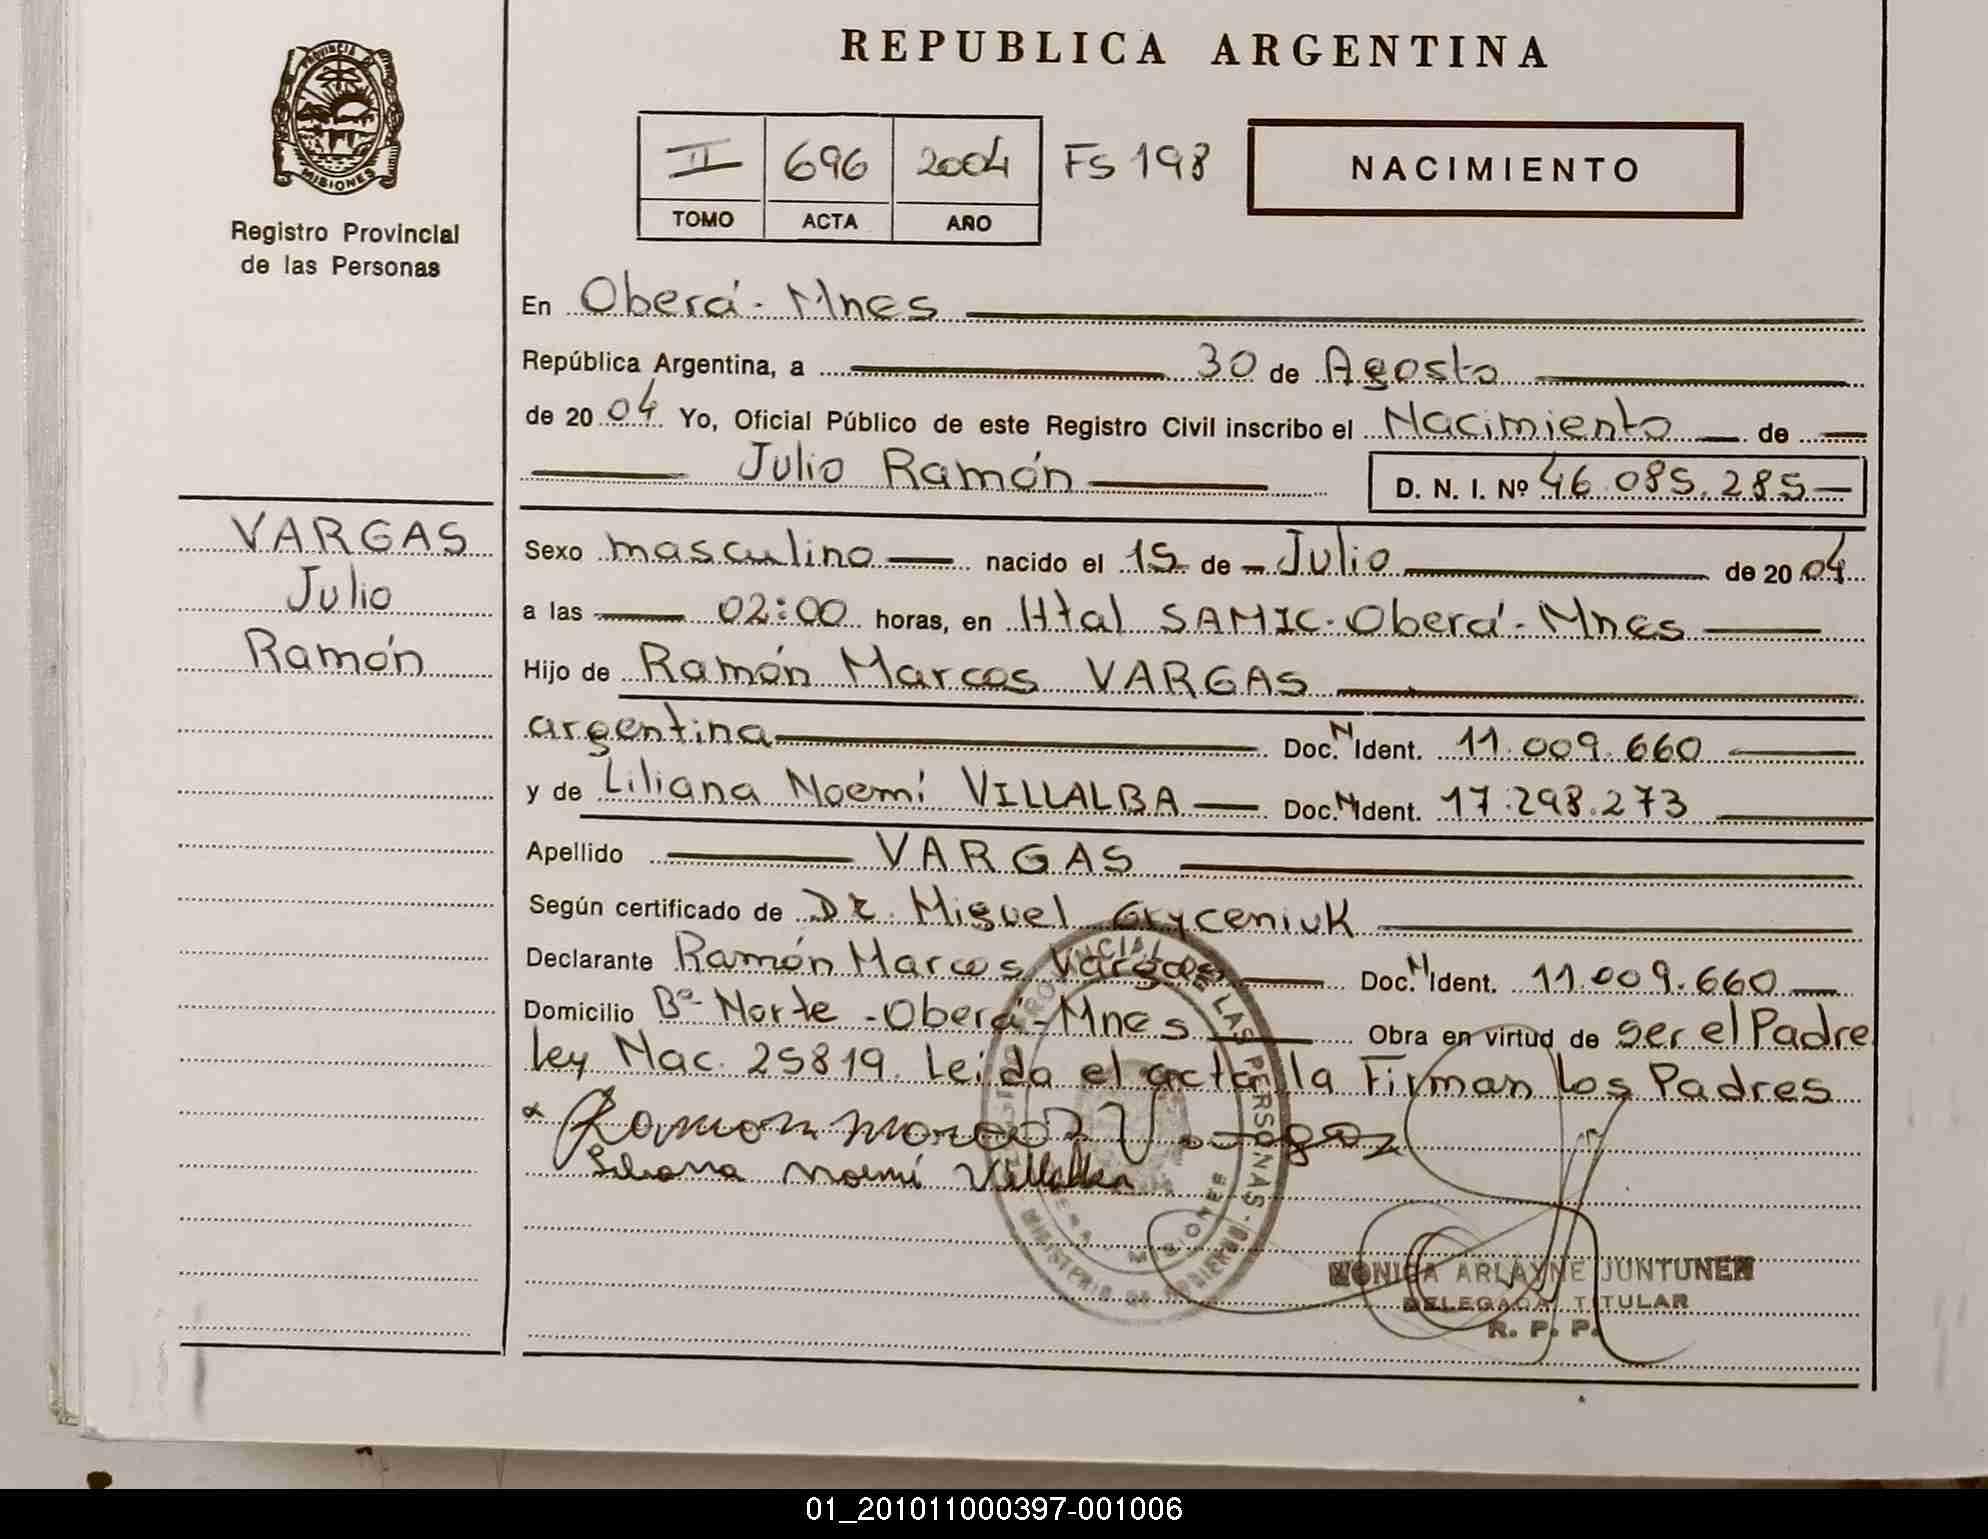 PROVINCIA DE
MISIONES
Registro Provincial
de las Personas
VARGAS
Julio
Ramón
REPUBLICA ARGENTINA
II 696 2004 Fs 198
TOMO ACTA AÑO
NACIMIENTO
En Oberá - Mnes
República Argentina, a 30 de Agosto
de 2004 Yo, Oficial Público de este Registro Civil inscribo el Nacimiento de
Julio Ramón D. N. I. Nº 46.085.285
Sexo masculino nacido el 15 de Julio de 2004
a las 02:00 horas, en Htal SAMIC - Oberá - Mnes
Hijo de Ramón Marcos VARGAS
argentina Doc. N Ident. 11.009.660
y de Liliana Noemí VILLALBA Doc. N Ident. 17.298.273
Apellido VARGAS
Según certificado de Dr. Miguel Gryceniuk
Declarante Ramón Marcos Vargas Doc. N Ident. 11.009.660
Domicilio Bº Norte - Oberá - Mnes Obra en virtud de ser el Padre
Ley Nac. 25819. Leida el acta la Firman los Padres
Ramon marcos Vargaz
Liliana Noemí Villalba
REGISTRO PROVINCIAL DE LAS PERSONAS
MINISTERIO DE GOBIERNO
OBERA MISIONES
MONICA ARLAYNE JUNTUNEN
DELEGADA TITULAR
R. P. P.
01_201011000397-001006